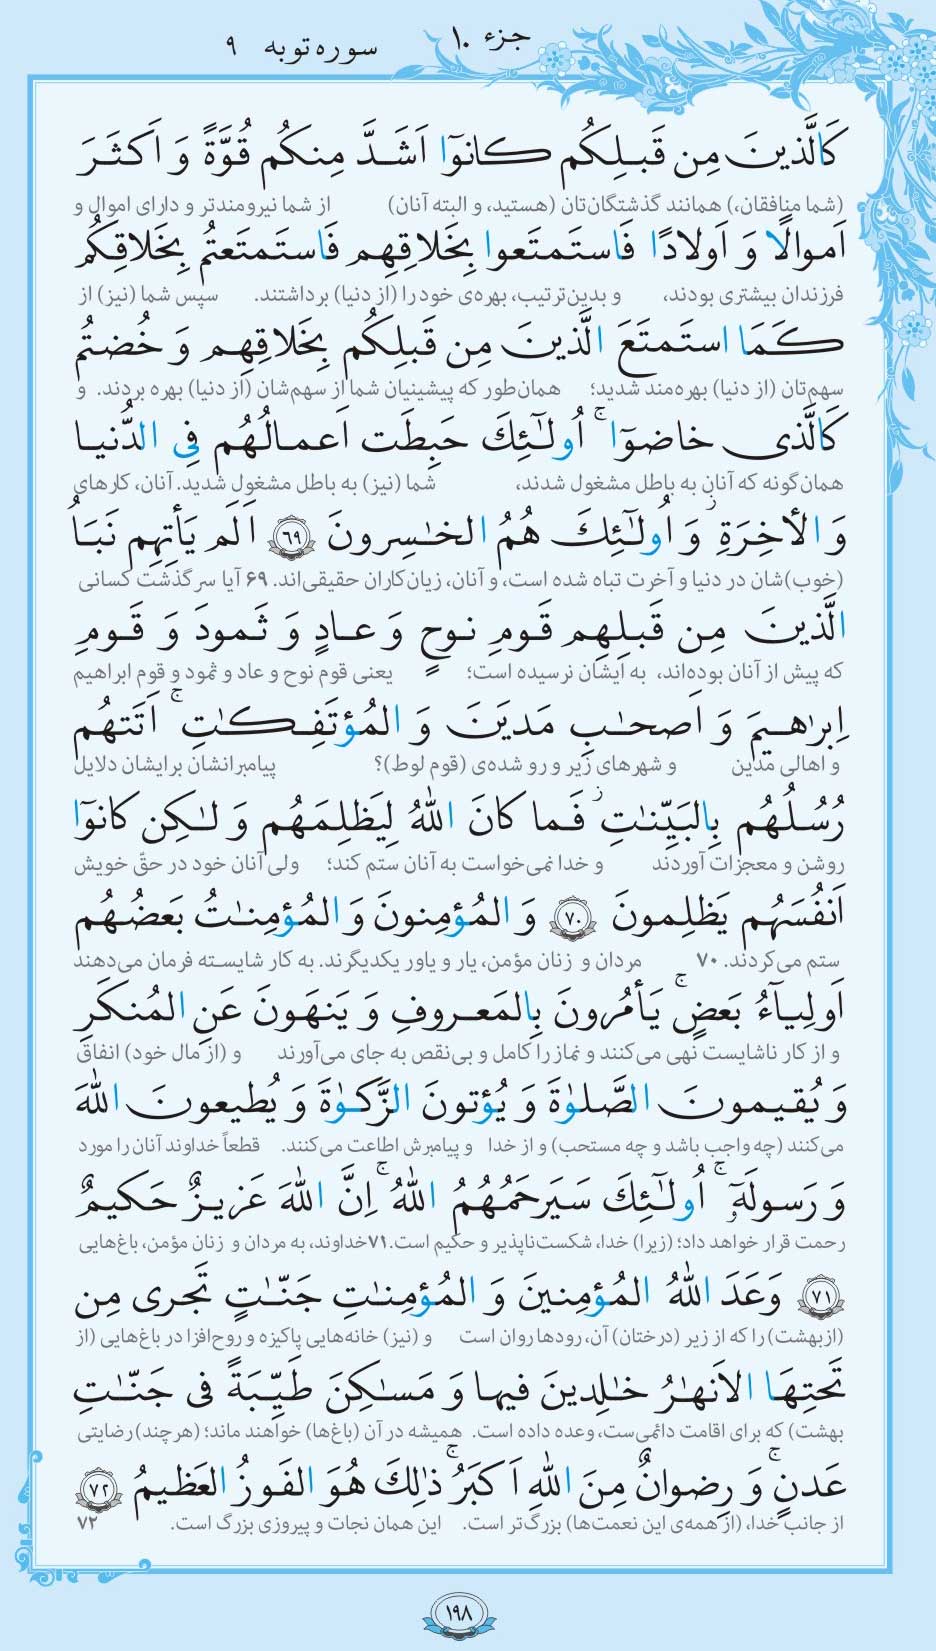 جزء ۱۰
سوره توبه ۹
كَالَّذينَ مِن قَبلِكُم كانوٓا اَشَدَّ مِنكُم قُوَّةً وَ اَكثَرَ
(شما منافقان،) همانند گذشتگان‌تان (هستید، و البته آنان) از شما نیرومندتر و دارای اموال و
اَموالًا وَ اَولادًا فَاستَمتَعوا بِخَلاقِهِم فَاستَمتَعتُم بِخَلاقِكُم
فرزندان بیشتری بودند، و بدین‌ترتیب، بهره‌ی خود را (از دنیا) برداشتند. سپس شما (نیز) از
كَمَا استَمتَعَ الَّذينَ مِن قَبلِكُم بِخَلاقِهِم وَ خُضتُم
سهم‌تان (از دنیا) بهره‌مند شدید؛ همان‌طور که پیشینیان شما از سهم‌شان (از دنیا) بهره بردند. و
كَالَّذى خاضوٓا ۚ اُولٰٓئِكَ حَبِطَت اَعمالُهُم فِى الدُّنيا
همان‌گونه که آنان به باطل مشغول شدند، شما (نیز) به باطل مشغول شدید. آنان، کارهای
وَ الأخِرَةِ ۖ وَ اُولٰٓئِكَ هُمُ الخٰسِرونَ ﴿۶۹﴾ اَلَم يَأتِهِم نَبَأُ
(خوب)شان در دنیا و آخرت تباه شده است، و آنان، زیان‌کاران حقیقی‌اند. ۶۹ آیا سرگذشت کسانی
الَّذينَ مِن قَبلِهِم قَومِ نوحٍ وَ عادٍ وَ ثَمودَ وَ قَومِ
که پیش از آنان بوده‌اند، به ایشان نرسیده است؛ یعنی قوم نوح و عاد و ثمود و قوم ابراهیم
اِبرٰهيمَ وَ اَصحٰبِ مَديَنَ وَ المُؤتَفِكٰتِ ۚ اَتَتهُم
و اهالی مدین و شهرهای زیر و رو شده‌ی (قوم لوط)؟ پیامبرانشان برایشان دلایل
رُسُلُهُم بِالبَيِّنٰتِ ۖ فَما كانَ اللّٰهُ لِيَظلِمَهُم وَ لٰكِن كانوٓا
روشن و معجزات آوردند و خدا نمی‌خواست به آنان ستم کند؛ ولی آنان خود در حقّ خویش
اَنفُسَهُم يَظلِمونَ ﴿۷۰﴾ وَ المُؤمِنونَ وَ المُؤمِنٰتُ بَعضُهُم
ستم می‌کردند. ۷۰ مردان و زنان مؤمن، یار و یاور یکدیگرند. به کار شایسته فرمان می‌دهند
اَولِيآءُ بَعضٍ ۚ يَأمُرونَ بِالمَعروفِ وَ يَنهَونَ عَنِ المُنكَرِ
و از کار ناشایست نهی می‌کنند و نماز را کامل و بی‌نقص به جای می‌آورند و (از مال خود) انفاق
وَ يُقيمونَ الصَّلوٰةَ وَ يُؤتونَ الزَّكوٰةَ وَ يُطيعونَ اللّٰهَ
می‌کنند (چه واجب باشد و چه مستحب) و از خدا و پیامبرش اطاعت می‌کنند. قطعاً خداوند آنان را مورد
وَ رَسولَهٓ ۚ اُولٰٓئِكَ سَيَرحَمُهُمُ اللّٰهُ ۗ اِنَّ اللّٰهَ عَزيزٌ حَكيمٌ
رحمت قرار خواهد داد؛ (زیرا) خدا، شکست‌ناپذیر و حکیم است. ۷۱خداوند، به مردان و زنان مؤمن، باغ‌هایی
﴿۷۱﴾ وَعَدَ اللّٰهُ المُؤمِنينَ وَ المُؤمِنٰتِ جَنّٰتٍ تَجرى مِن
(ازبهشت) را که از زیر (درختان) آن، رودها روان است و (نیز) خانه‌هایی پاکیزه و روح‌افزا در باغ‌هایی (از
تَحتِهَا الاَنهٰرُ خٰلِدينَ فيها وَ مَسٰكِنَ طَيِّبَةً فى جَنّٰتِ
بهشت) که برای اقامت دائمی‌ست، وعده داده است. همیشه در آن (باغ‌ها) خواهند ماند؛ (هرچند) رضایتی
عَدنٍ ۚ وَ رِضوانٌ مِنَ اللّٰهِ اَكبَرُ ۚ ذٰلِكَ هُوَ الفَوزُ العَظيمُ ﴿۷۲﴾
از جانب خدا، (از همه‌ی این نعمت‌ها) بزرگ‌تر است. این همان نجات و پیروزی بزرگ است. ۷۲
۱۹۸